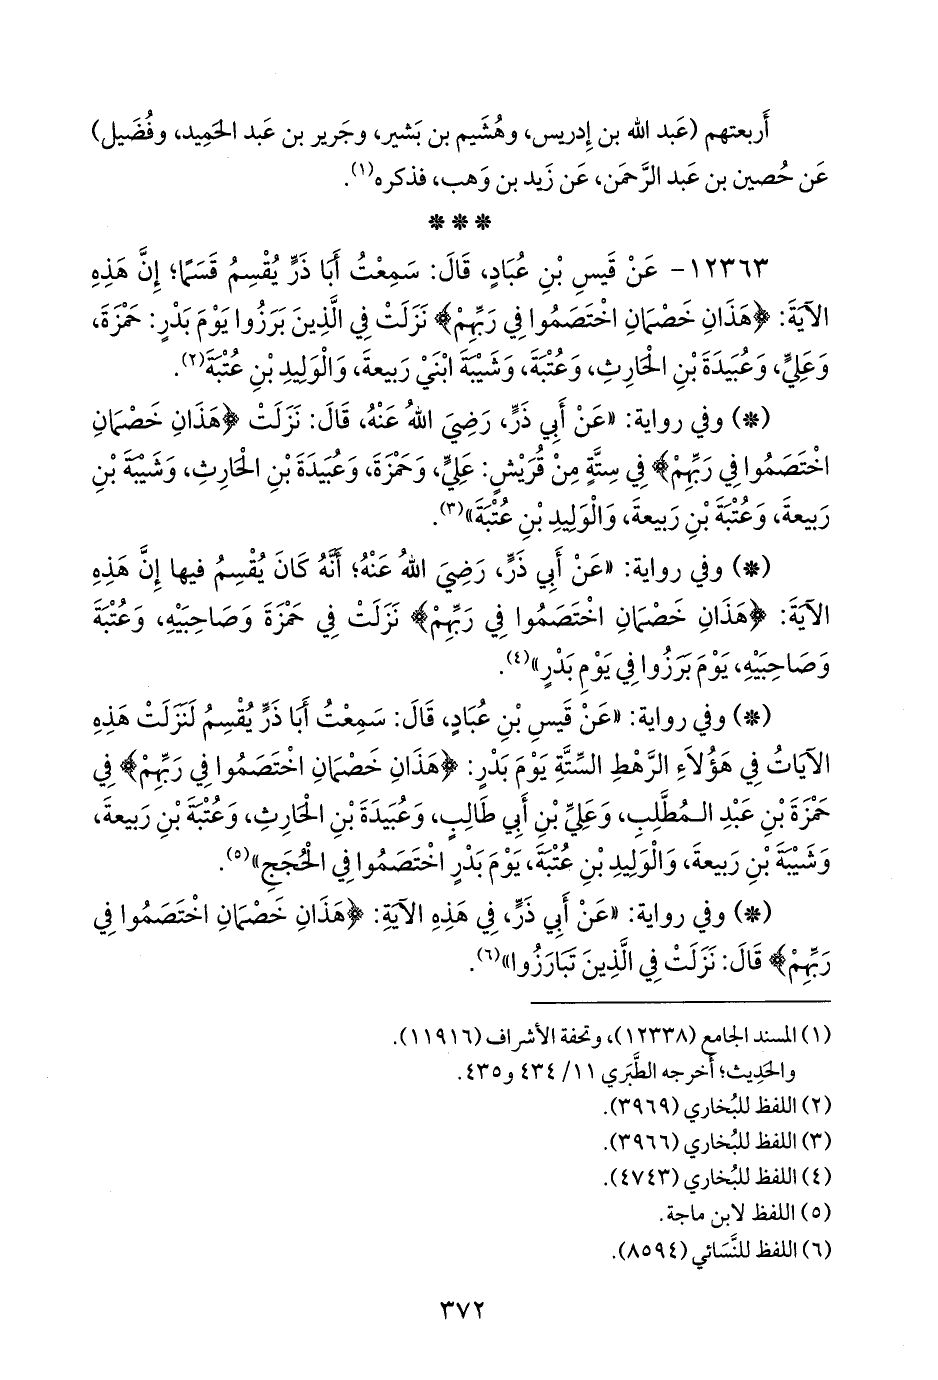 أَربعتهم (عَبد الله بن إِدريس، وهُشَيم بن بَشير، وجَرير بن عَبد الحَميد، وفُضَيل)
عَن حُصين بن عَبد الرَّحمَن، عَن زَيد بن وَهب، فذكره(١).
* * *
١٢٣٦٣- عَنْ قَيسِ بْنِ عُبَادٍ، قَالَ: سَمِعْتُ أَبَا ذَرٍّ يُقْسِمُ قَسَمًا؛ إِنَّ هَذِهِ
الآيَةَ: ﴿هَذَانِ خَصْمَانِ اخْتَصَمُوا فِي رَبِّهِمْ﴾ نَزَلَتْ فِي الَّذِينَ بَرَزُوا يَوْمَ بَدْرٍ: حَمْزَةَ،
وَعَلِيٍّ، وَعُبَيدَةَ بْنِ الْحَارِثِ، وَعُتْبَةَ، وَشَيْبَةَ ابْنَيْ رَبِيعةَ، وَالْوَلِيدِ بْنِ عُتْبَةَ(٢).
(*) وفي رواية: «عَنْ أَبِي ذَرٍّ، رَضِيَ اللهُ عَنْهُ، قَالَ: نَزَلَتْ ﴿هَذَانِ خَصْمَانِ
اخْتَصَمُوا فِي رَبِّهِمْ﴾ فِي سِتَّةٍ مِنْ قُرَيْشٍ: عَلِيٍّ، وَحَمْزَةَ، وَعُبَيدَةَ بْنِ الْحَارِثِ، وَشَيْبَةَ بْنِ
رَبِيعةَ، وَعُتْبَةَ بْنِ رَبِيعةَ، وَالْوَلِيدِ بْنِ عُتْبَةَ»(٣).
(*) وفي رواية: «عَنْ أَبِي ذَرٍّ، رَضِيَ اللهُ عَنْهُ؛ أَنَّهُ كَانَ يُقْسِمُ فيها إِنَّ هَذِهِ
الآيَةَ: ﴿هَذَانِ خَصْمَانِ اخْتَصَمُوا فِي رَبِّهِمْ﴾ نَزَلَتْ فِي حَمْزَةَ وَصَاحِبَيْهِ، وَعُتْبَةَ
وَصَاحِبَيْهِ، يَوْمَ بَرَزُوا فِي يَوْمِ بَدْرٍ»(٤).
(*) وفي رواية: «عَنْ قَيسِ بْنِ عُبَادٍ، قَالَ: سَمِعْتُ أَبَا ذَرٍّ يُقْسِمُ لَنَزَلَتْ هَذِهِ
الآيَاتُ فِي هَؤُلَاءِ الرَّهْطِ السِّتَّةِ يَوْمَ بَدْرٍ: ﴿هَذَانِ خَصْمَانِ اخْتَصَمُوا فِي رَبِّهِمْ﴾ فِي
حَمْزَةَ بْنِ عَبْدِ الـمُطَّلِبِ، وَعَلِيِّ بْنِ أَبِي طَالِبٍ، وَعُبَيدَةَ بْنِ الْحَارِثِ، وَعُتْبَةَ بْنِ رَبِيعةَ،
وَشَيْبَةَ بْنِ رَبِيعةَ، وَالْوَلِيدِ بْنِ عُتْبَةَ، يَوْمَ بَدْرٍ اخْتَصَمُوا فِي الْحُجَجِ»(٥).
(*) وفي رواية: «عَنْ أَبِي ذَرٍّ، فِي هَذِهِ الآيَةِ: ﴿هَذَانِ خَصْمَانِ اخْتَصَمُوا فِي
رَبِّهِمْ﴾ قَالَ: نَزَلَتْ فِي الَّذِينَ تَبَارَزُوا»(٦).
(١) المسند الجامع (١٢٣٣٨)، وتحفة الأشراف (١١٩١٦).
والحَديث؛ أخرجه الطَّبَري ١١/ ٤٣٤ و٤٣٥.
(٢) اللفظ للبُخاري (٣٩٦٩).
(٣) اللفظ للبُخاري (٣٩٦٦).
(٤) اللفظ للبُخاري (٤٧٤٣).
(٥) اللفظ لابن ماجة.
(٦) اللفظ للنَّسَائي (٨٥٩٤).
٣٧٢